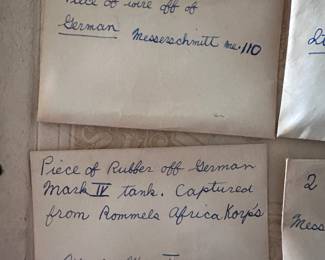 Piece of wire off of
German Messerschmitt me. 110
Piece of Rubber off German
Mark IV tank. Captured
from Rommels Africa Korp's
2
Mess